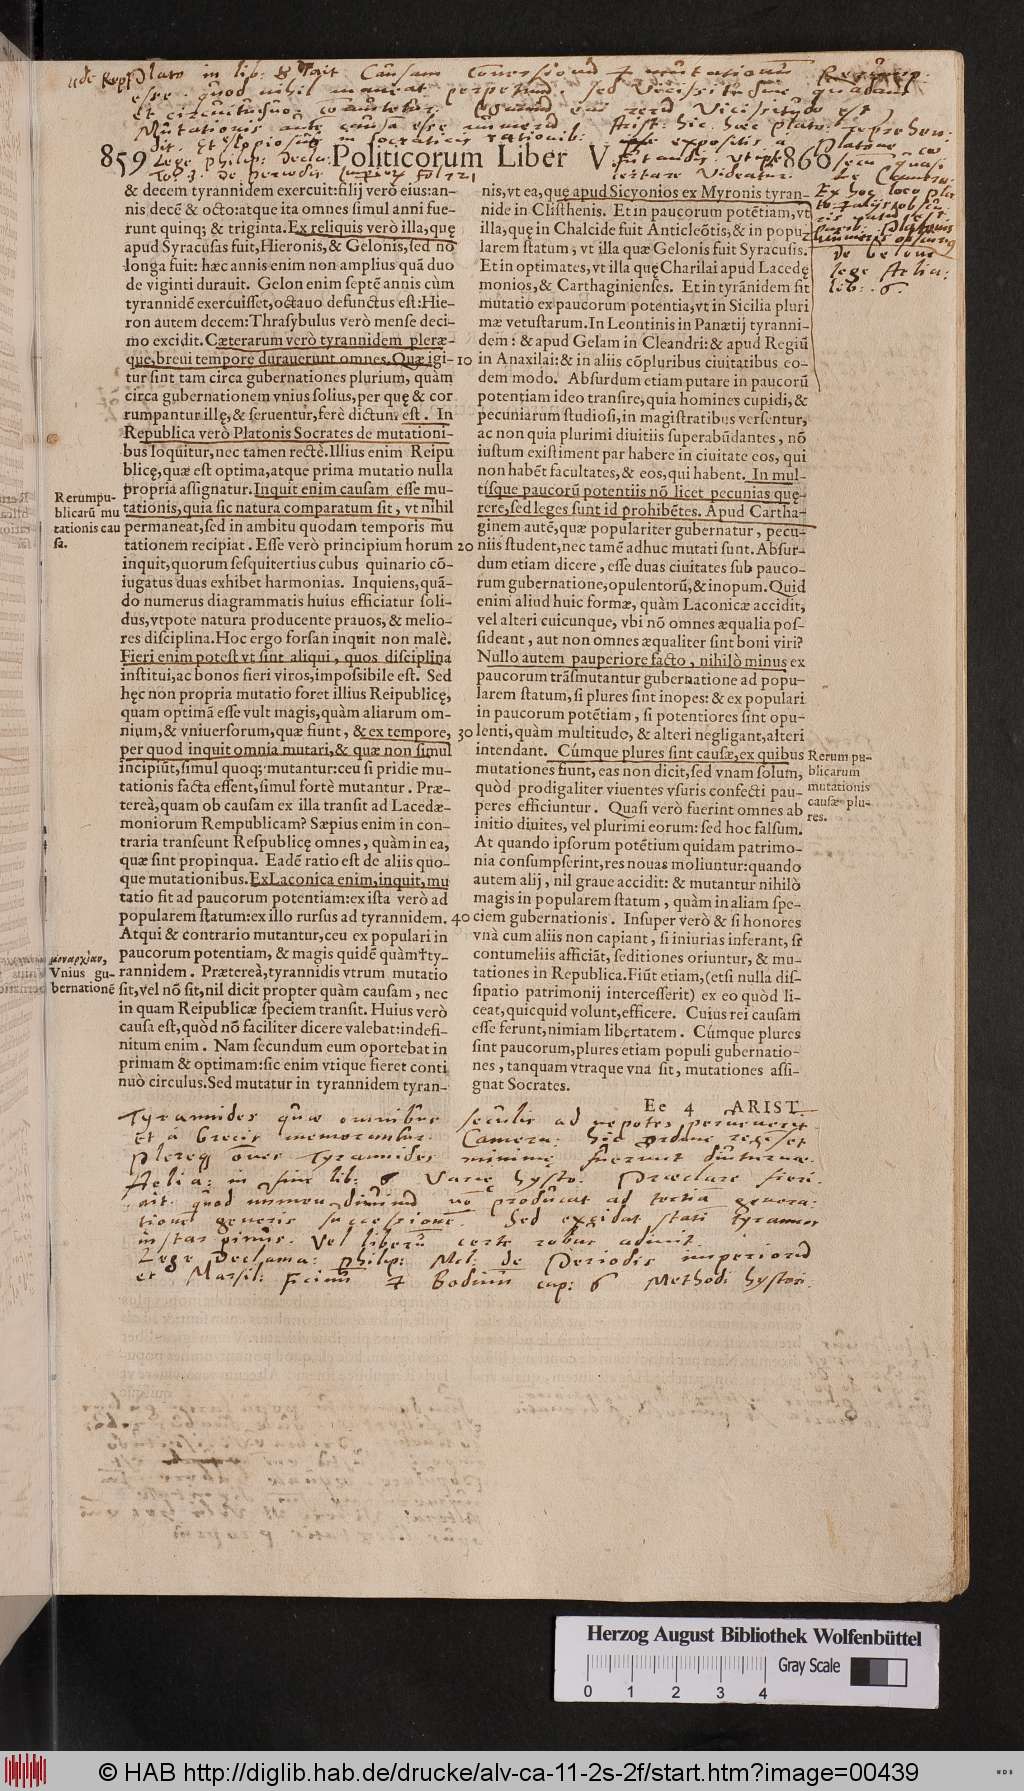 Plato in lib: 8 ait Causam Conuersionũ & mutationũ Rerump:
esse. quod nihil maneat perpetuũ. sed Vicissitudine quadam
Mutationis
859 Politicorum Liber V. 860
Lege Philip: Decla:
& decem tyrannidem exercuit: filij verò eius: an-
nis decẽ & octo: atque ita omnes simul anni fue-
runt quinq; & triginta. Ex reliquis verò illa, quę
apud Syracusas fuit, Hieronis, & Gelonis, sed nõ
longa fuit: hæc annis enim non amplius quã duo
de viginti durauit. Gelon enim septẽ annis cùm
tyrannidẽ exercuisset, octauo defunctus est: Hie-
ron autem decem: Thrasybulus verò mense deci-
mo excidit. Cæterarum verò tyrannidem pleræ-
que breui tempore durauerunt omnes. Quæ igi-
tur sint tam circa gubernationes plurium, quàm
circa gubernationem vnius solius, per quę & cor
rumpantur illę, & seruentur, ferè dictum est. In
Republica verò Platonis Socrates de mutationi-
bus loquitur, nec tamen rectè. Illius enim Reipu
blicę, quæ est optima, atque prima mutatio nulla
propria assignatur. Inquit enim causam esse mu-
tationis, quia sic natura comparatum sit, vt nihil
permaneat, sed in ambitu quodam temporis mu
tationem recipiat. Esse verò principium horum
inquit, quorum sesquitertius cubus quinario cõ-
iugatus duas exhibet harmonias. Inquiens, quã-
do numerus diagrammatis huius efficiatur soli-
dus, vtpote natura producente prauos, & melio-
res disciplina. Hoc ergo forsan inquit non malè.
Fieri enim potest vt sint aliqui, quos disciplina
institui, ac bonos fieri viros, impossibile est. Sed
hęc non propria mutatio foret illius Reipublicę,
quam optimã esse vult magis, quàm aliarum om-
nium, & vniuersorum, quæ fiunt, & ex tempore,
per quod inquit omnia mutari, & quæ non simul
incipiũt, simul quoq; mutantur: ceu si pridie mu-
tationis facta essent, simul fortè mutantur. Præ-
tereà, quam ob causam ex illa transit ad Lacedæ-
moniorum Rempublicam? Sæpius enim in con-
traria transeunt Respublicę omnes, quàm in ea,
quæ sint propinqua. Eadẽ ratio est de aliis quo-
que mutationibus. Ex Laconica enim, inquit, mu
tatio fit ad paucorum potentiam: ex ista verò ad
popularem statum: ex illo rursus ad tyrannidem.
Atqui & contrario mutantur, ceu ex populari in
paucorum potentiam, & magis quidẽ quàm†ty-
rannidem. Prætereà, tyrannidis vtrum mutatio
sit, vel nõ sit, nil dicit propter quàm causam, nec
in quam Reipublicæ speciem transit. Huius verò
causa est, quòd nõ faciliter dicere valebat: indefi-
nitum enim. Nam secundum eum oportebat in
primam & optimam: sic enim vtique fieret conti
nuò circulus. Sed mutatur in tyrannidem tyran-
Rerumpu-
blicarũ mu
tationis cau
sa.
μοναρχίαν,
Vnius gu-
bernationẽ
10
20
30
40
nis, vt ea, quę apud Sicyonios ex Myronis tyran-
nide in Clisthenis. Et in paucorum potẽtiam, vt
illa, quę in Chalcide fuit Anticleõtis, & in popu-
larem statum, vt illa quæ Gelonis fuit Syracusis.
Et in optimates, vt illa quę Charilai apud Lacedę
monios, & Carthaginienses. Et in tyrãnidem fit
mutatio ex paucorum potentia, vt in Sicilia pluri
mæ vetustarum. In Leontinis in Panætij tyranni-
dem: & apud Gelam in Cleandri: & apud Regiũ
in Anaxilai: & in aliis cõpluribus ciuitatibus eo-
dem modo. Absurdum etiam putare in paucorũ
potentiam ideo transire, quia homines cupidi, &
pecuniarum studiosi, in magistratibus versentur,
ac non quia plurimi diuitiis superabũdantes, nõ
iustum existiment par habere in ciuitate eos, qui
non habẽt facultates, & eos, qui habent. In mul-
tisque paucorũ potentiis nõ licet pecunias quę-
rere, sed leges sunt id prohibẽtes. Apud Cartha-
ginem autẽ, quæ populariter gubernatur, pecu-
niis student, nec tamẽ adhuc mutati sunt. Absur-
dum etiam dicere, esse duas ciuitates sub pauco-
rum gubernatione, opulentorũ, & inopum. Quid
enim aliud huic formæ, quàm Laconicæ accidit,
vel alteri cuicunque, vbi nõ omnes æqualia pos-
sideant, aut non omnes æqualiter sint boni viri?
Nullo autem pauperiore facto, nihilò minus ex
paucorum trãsmutantur gubernatione ad popu-
larem statum, si plures sint inopes: & ex populari
in paucorum potẽtiam, si potentiores sint opu-
lenti, quàm multitudo, & alteri negligant, alteri
intendant. Cúmque plures sint causæ, ex quibus
mutationes fiunt, eas non dicit, sed vnam solum,
quòd prodigaliter viuentes vsuris confecti pau-
peres efficiuntur. Quasi verò fuerint omnes ab
initio diuites, vel plurimi eorum: sed hoc falsum.
At quando ipsorum potẽtium quidam patrimo-
nia consumpserint, res nouas moliuntur: quando
autem alij, nil graue accidit: & mutantur nihilò
magis in popularem statum, quàm in aliam spe-
ciem gubernationis. Insuper verò & si honores
vnà cum aliis non capiant, si iniurias inferant, si
contumeliis afficiãt, seditiones oriuntur, & mu-
tationes in Republica. Fiũt etiam, (etsi nulla dis-
sipatio patrimonij intercesserit) ex eo quòd li-
ceat, quicquid volunt, efficere. Cuius rei causam
esse ferunt, nimiam libertatem. Cúmque plures
sint paucorum, plures etiam populi gubernatio-
nes, tanquam vtraque vna sit, mutationes assi-
gnat Socrates.
Rerum pu-
blicarum
mutationis
causæ plu-
res.
Ee 4 ARIST.
Tyrannides quæ omnibus seculis ad nepotes peruenerit
Et à Grecis memorantur. Camera: hic ordine recẽset
Plereq oẽs Tyrannides minimę fuerunt diuturnæ.
Aelia: in fine lib: 6 Varię hysto. Præclare fieri
ait. quod numen diuinũ nõ producat ad tertiã genera-
tionẽ generis successionẽ. Sed excidat statĩ tyrannos
instar pinus. Vel liberũ certe robur adimit.
Lege Declama: Philip: Mel: de Periodis imperiorũ
et Marsil: Ficinũ & Bodinũ cap: 6 Methodi hystori.
Herzog August Bibliothek Wolfenbüttel
Gray Scale
0 1 2 3 4
© HAB http://diglib.hab.de/drucke/alv-ca-11-2s-2f/start.htm?image=00439